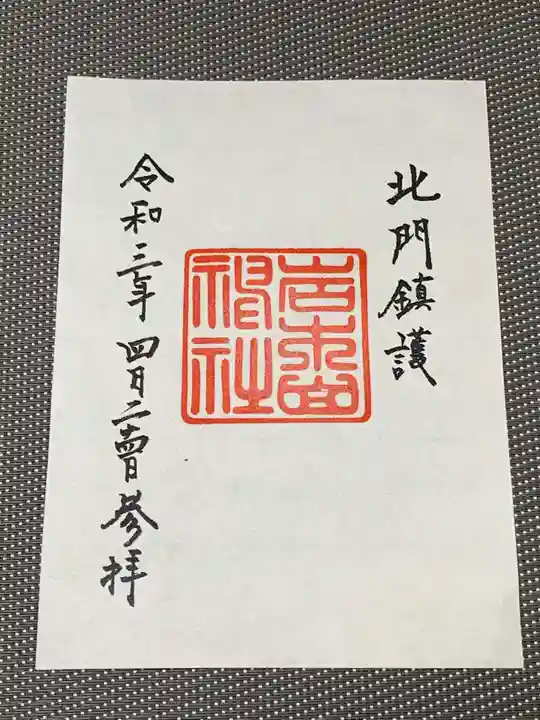 北門鎮護
岩木山
神社
令和三年 四月二十四日参拝